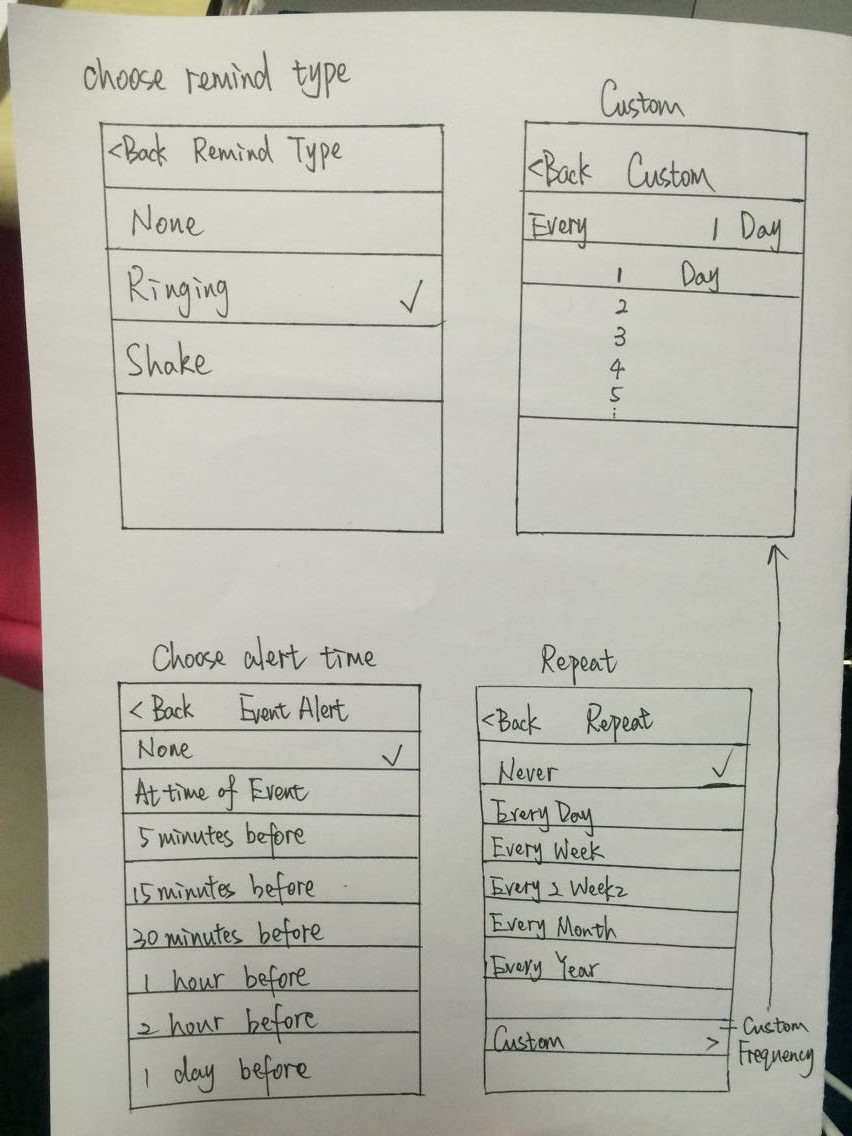 choose remind type
<Back Remind Type
None
Ringing ✓
Shake
Custom
<Back Custom
Every 1 Day
1 Day
2
3
4
5
⋮
Choose alert time
< Back Event Alert
None ✓
At time of Event
5 minutes before
15 minutes before
30 minutes before
1 hour before
2 hour before
1 day before
Repeat
<Back Repeat
Never ✓
Every Day
Every Week
Every 2 Weeks
Every Month
Every Year
Custom >
Custom
Frequency